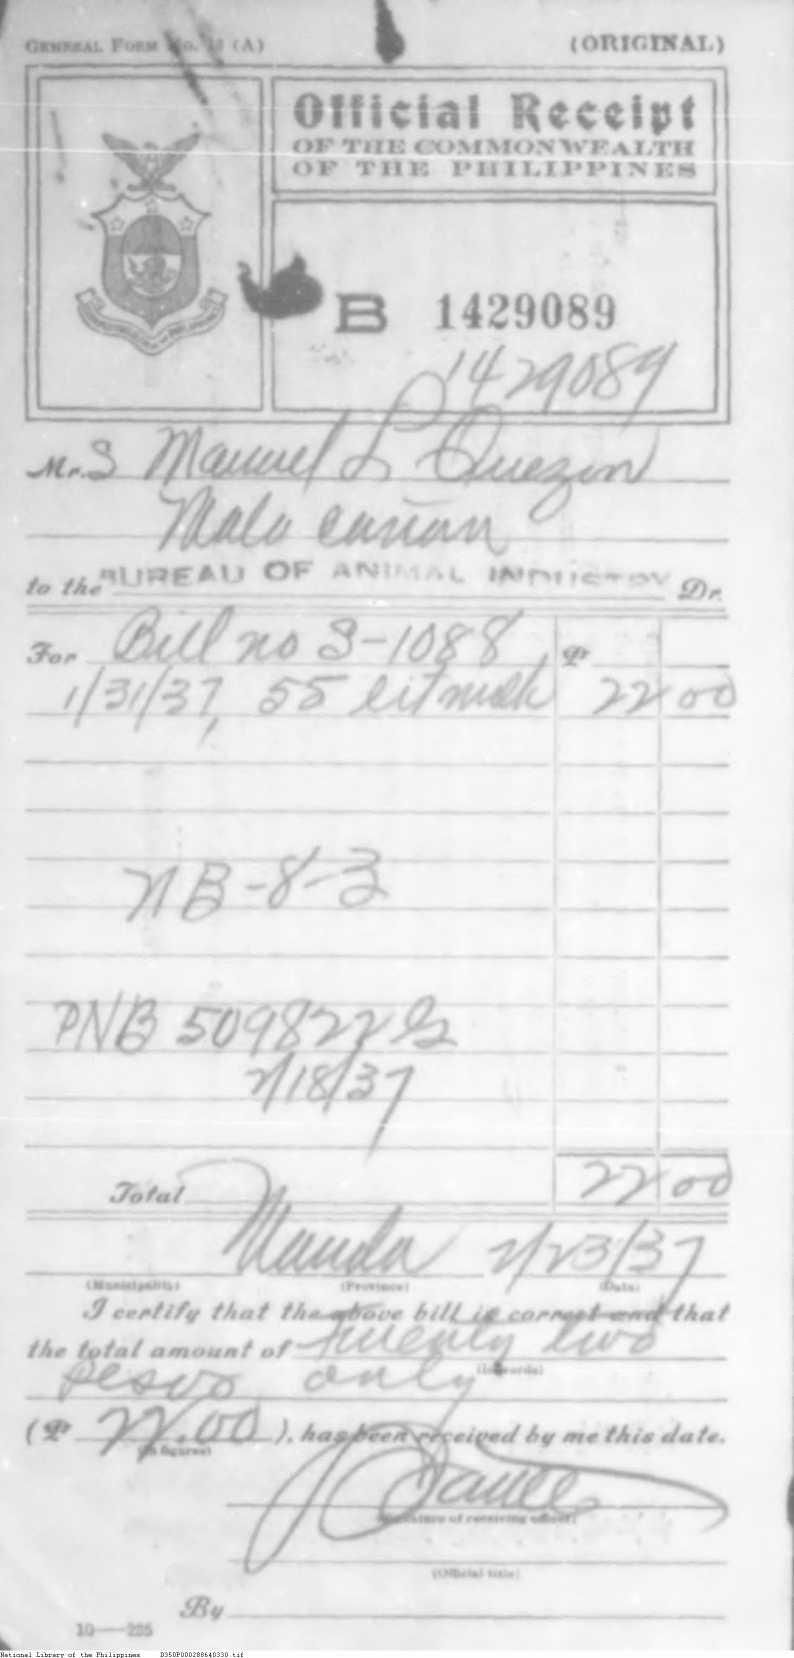 GENERAL FORM No. 13 (A)
(ORIGINAL)
Official Receipt
OF THE COMMONWEALTH
OF THE PHILIPPINES
B 1429089
1429089
Mr. S Manuel L Quezon
Malacañan
to the BUREAU OF ANIMAL INDUSTRY Dr.
For Bill no S-1088 ₱
1/31/37, 55 lit milk 22 00
NB-8-3
PNB 509822
2/18/37
Total 22 00
Manila 2/23/37
(Municipality) (Province) (Date)
I certify that the above bill is correct and that
the total amount of twenty two
(In words)
pesos only
(₱ 22.00 ), has been received by me this date.
(In figures)
(Signature of receiving officer)
(Official title)
By
10—235
National Library of the Philippines D350P000288640330.tif